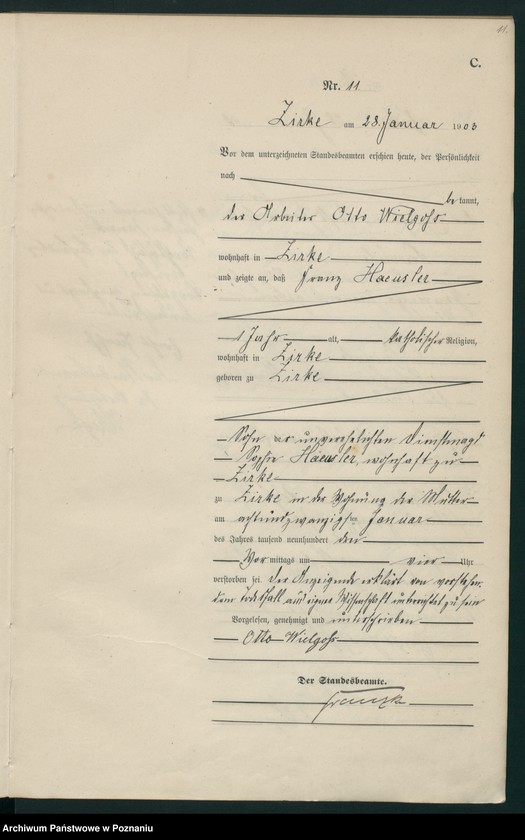 11.
C.
Nr. 11
Zirke am 28. Januar 1903
Vor dem unterzeichneten Standesbeamten erschien heute, der Persönlichkeit
nach
bekannt,
der Arbeiter Otto Wielgosz
wohnhaft in Zirke
und zeigte an, daß Franz Haeusler
1 Jahr alt, katholischer Religion,
wohnhaft in Zirke
geboren zu Zirke
Sohn der unverehelichten Dienstmagd
Sophie Haeusler, wohnhaft zu
Zirke
zu Zirke in der Wohnung der Mutter
am achtundzwanzigsten Januar
des Jahres tausend neunhundert drei
Vormittags um vier Uhr
verstorben sei. Der Anzeigende erklärt von vorstehen-
dem Todesfall aus eigner Wissenschaft unterrichtet zu sein
Vorgelesen, genehmigt und unterschrieben
Otto Wielgosz
Der Standesbeamte.
Archiwum Państwowe w Poznaniu